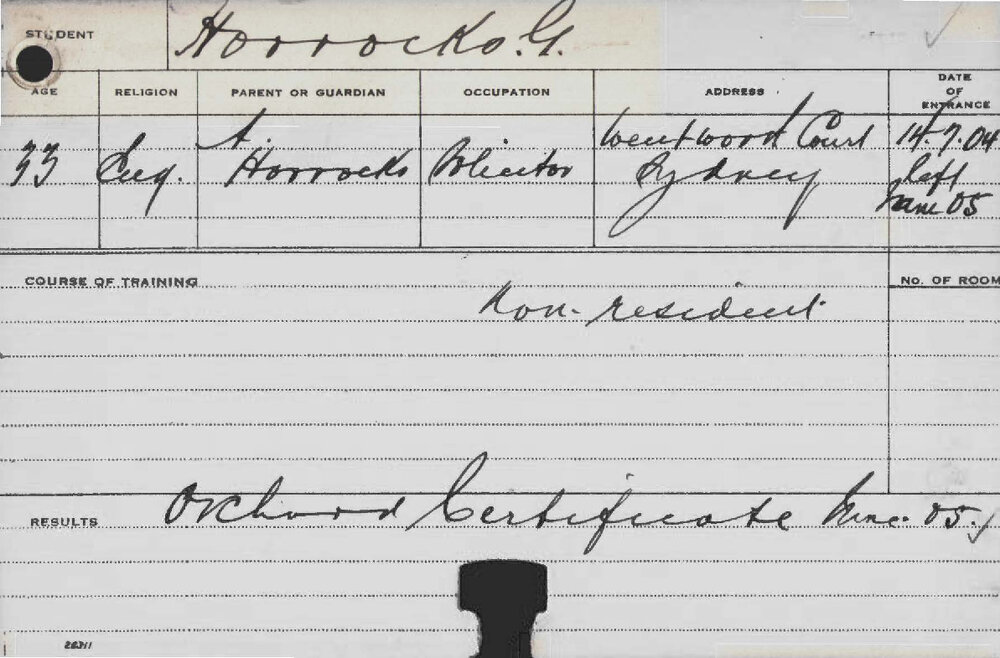 STUDENT Horrocks. G.
AGE RELIGION PARENT OR GUARDIAN OCCUPATION ADDRESS DATE OF ENTRANCE
33 Eng. A. Horrocks Solicitor Wentworth Court Sydney 14.7.04
left
June 05
COURSE OF TRAINING
No. OF ROOM
Non-resident
RESULTS Orchard Certificate June. 05.
26311